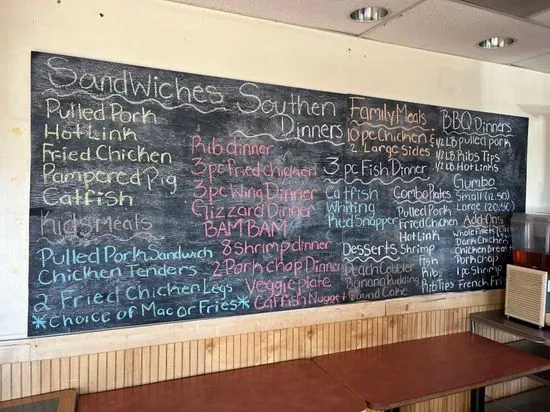 Sandwiches
Pulled Pork
Hot Link
Fried Chicken
Pampered Pig
Catfish
Kids Meals
Pulled Pork Sandwich
Chicken Tenders
2 Fried Chicken Legs
*Choice of Mac or Fries*
Southen
Dinners
Rib dinner
3 pc fried chicken
3 pc Wing Dinner
Gizzard Dinner
BAM BAM
8 shrimp dinner
2 Pork Chop Dinner
Veggie plate
Catfish Nugge
Family Meals
10 pc Chicken &
2 Large sides
3 pc Fish Dinner
Catfish
Whiting
Red Snapper
Desserts
Peach Cobbler
Banana Pudding
Pound Cake
Combo Plates
Pulled Pork
Fried Chicken
Hot Link
Shrimp
Fish
Rib
Rib Tips
BBQ Dinners
1/2 LB Pulled pork
1/2 LB Ribs Tips
1/2 LB Hot Links
Gumbo
Small (12.50)
Large (20.50)
Add-Ons
Dark Chicken
Chicken Breast
Pork Chop
1 pc shrimp
French Fri